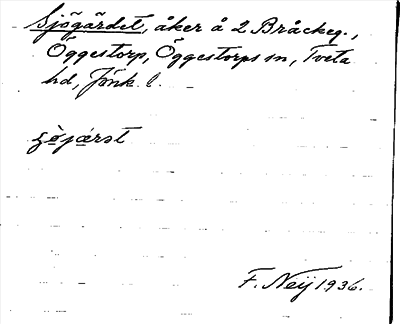 Sjögärdet, åker å 2 Bråckeg.,
Öggestorp, Öggestorps sn, Tveta
hd, Jönk. l.
F. Neij 1936.